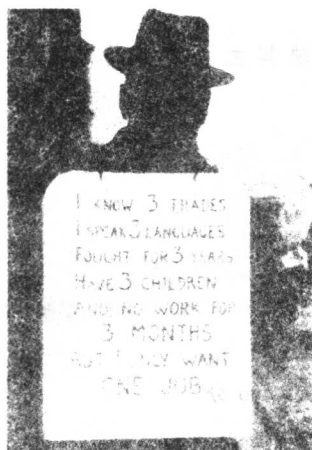 I KNOW 3 TRADES
I SPEAK 3 LANGUAGES
FOUGHT FOR 3 YEARS
HAVE 3 CHILDREN
AND NO WORK FOR
3 MONTHS
BUT I ONLY WANT
ONE JOB